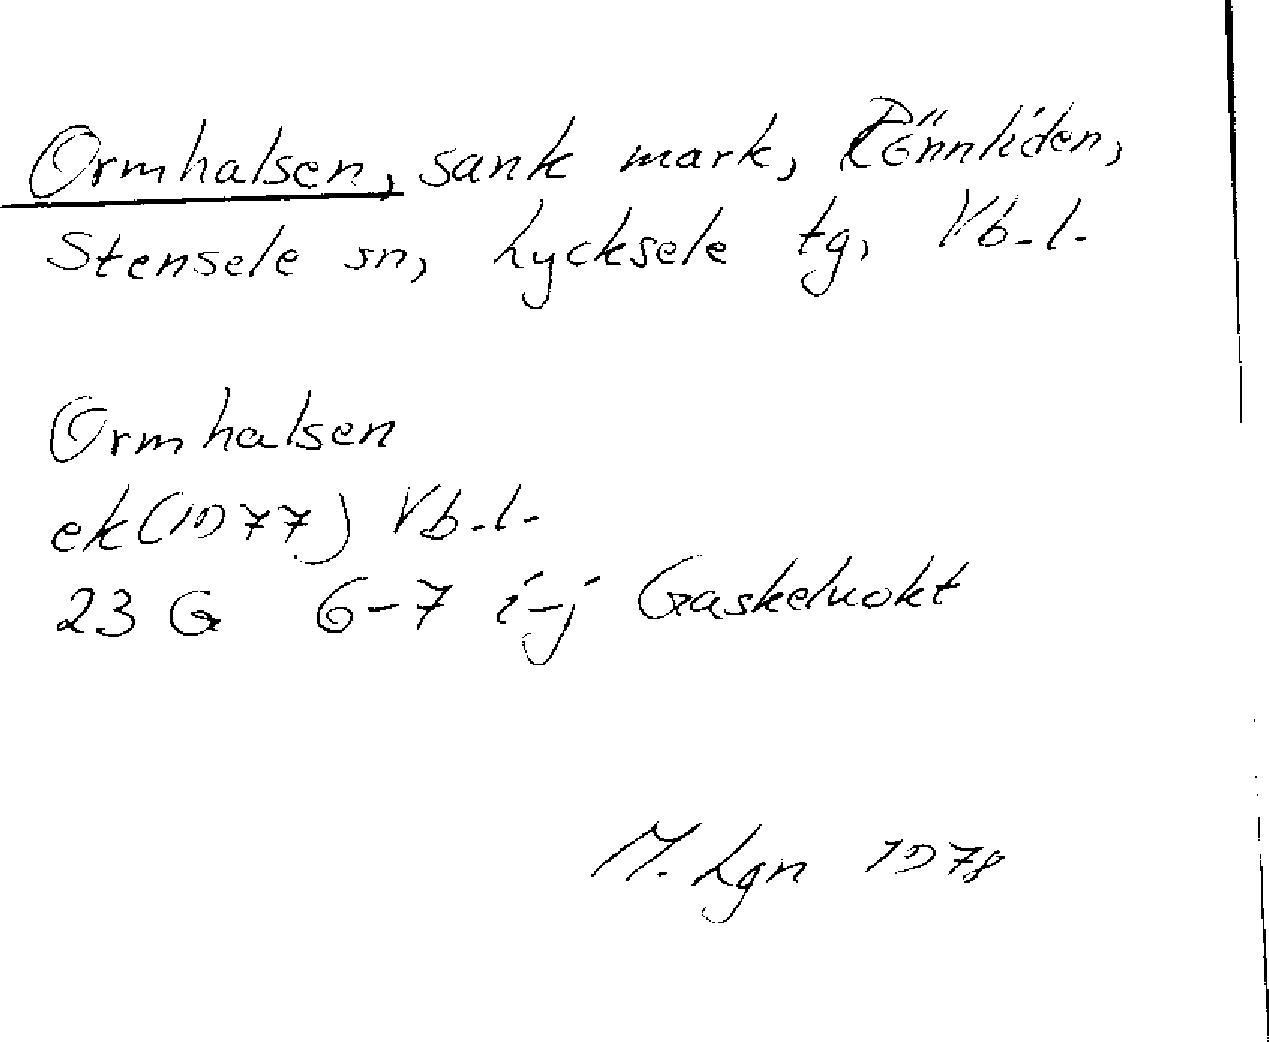 Ormhalsen, sank mark, Rönnliden,
Stensele sn, Lycksele tg, Vb.l.
Ormhalsen
ek(1977) Vb.l.
23 G 6-7 i-j Gaskeluokt
M. Lgn 1978